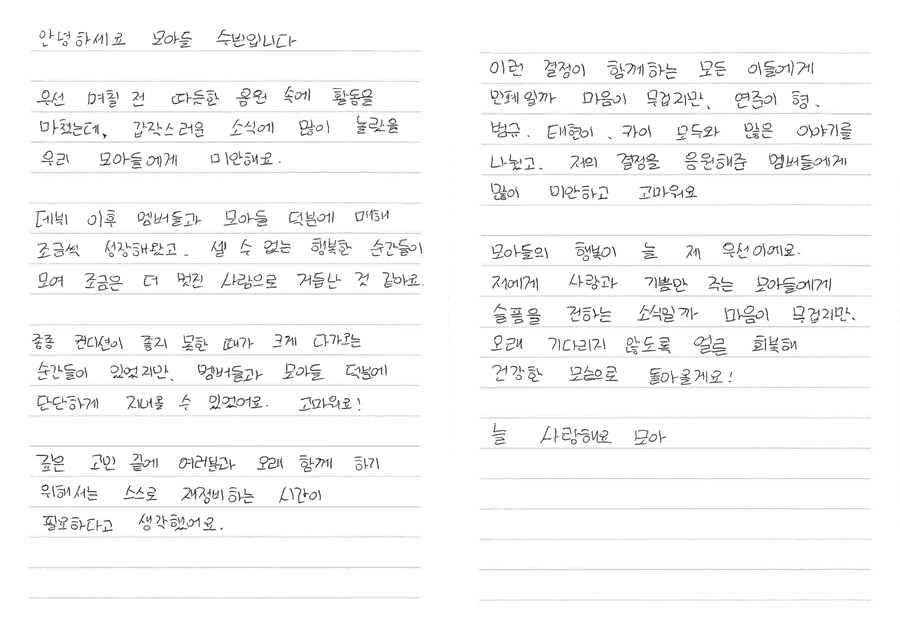 안녕하세요 모아들 수빈입니다
우선 며칠 전 따듯한 응원 속에 활동을
마쳤는데, 갑작스러운 소식에 많이 놀랐을
우리 모아들에게 미안해요.
데뷔 이후 멤버들과 모아들 덕분에 매해
조금씩 성장해왔고. 셀 수 없는 행복한 순간들이
모여 조금은 더 멋진 사람으로 거듭난 것 같아요.
종종 컨디션이 좋지 못한 때가 크게 다가오는
순간들이 있었지만, 멤버들과 모아들 덕분에
단단하게 지내올 수 있었어요. 고마워요!
깊은 고민 끝에 여러분과 오래 함께 하기
위해서는 스스로 재정비하는 시간이
필요하다고 생각했어요.
이런 결정이 함께하는 모든 이들에게
민폐일까 마음이 무겁지만, 연준이 형,
범규, 태현이, 카이 모두와 많은 이야기를
나눴고, 저의 결정을 응원해준 멤버들에게
많이 미안하고 고마워요
모아들의 행복이 늘 제 우선이에요.
저에게 사랑과 기쁨만 주는 모아들에게
슬픔을 전하는 소식일까 마음이 무겁지만,
오래 기다리지 않도록 얼른 회복해
건강한 모습으로 돌아올게요!
늘 사랑해요 모아